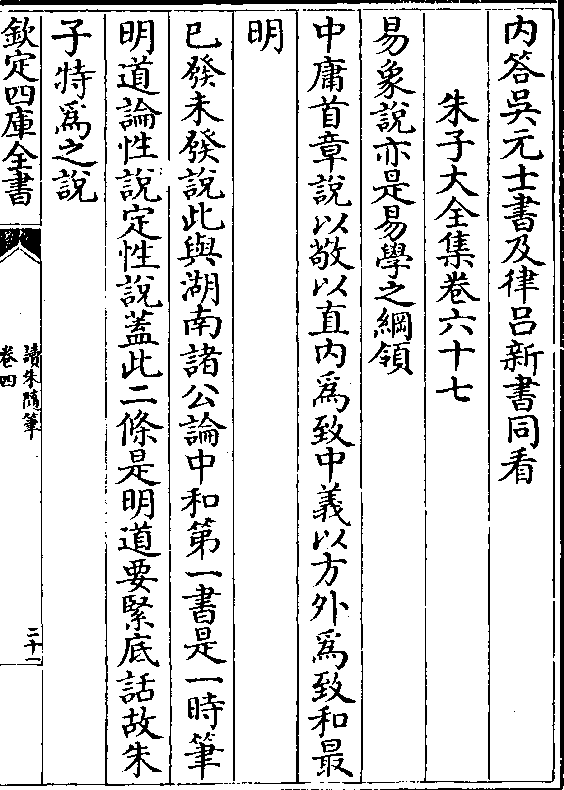 内答吳元士書及律呂新書同看
朱子大全集卷六十七
易象說亦是易學之綱領
中庸首章說以敬以直内爲致中義以方外爲致和最
明
已發未發說此與湖南諸公論中和第一書是一時筆
明道論性說定性說蓋此二條是明道要緊底話故朱
子特爲之說
欽定四庫全書
讀朱隨筆
卷四
二十一